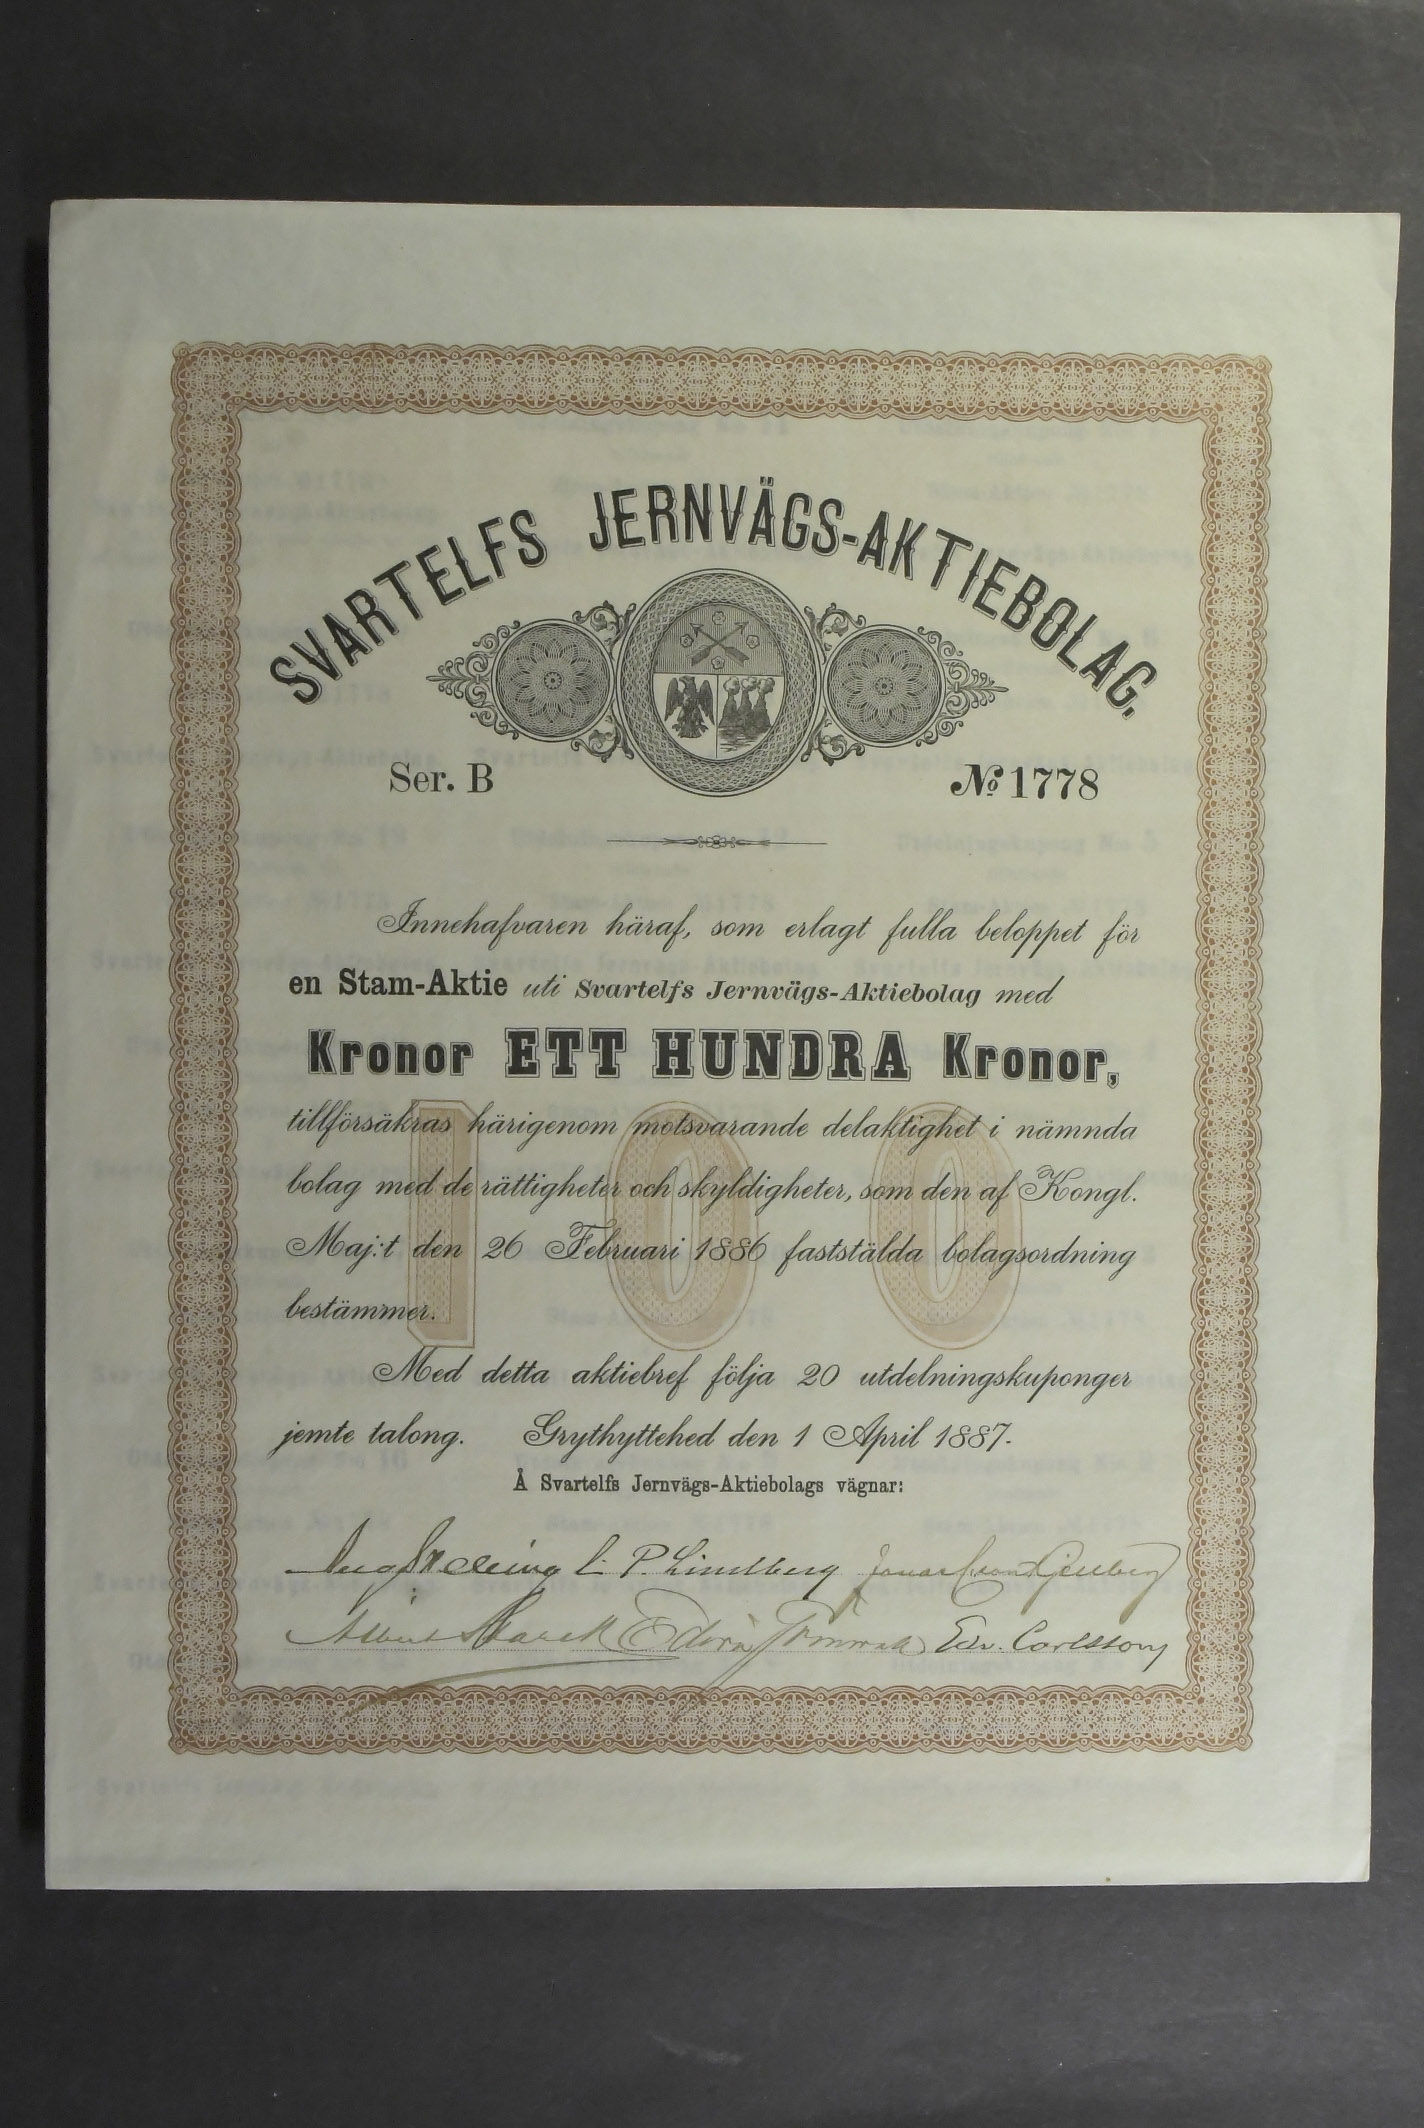 SVARTELFS JERNVÄGS-AKTIEBOLAG.
Ser. B № 1778
Innehafvaren häraf, som erlagt fulla beloppet för
en Stam-Aktie uti Svartelfs Jernvägs-Aktiebolag med
Kronor ETT HUNDRA Kronor,
100
tillförsäkras härigenom motsvarande delaktighet i nämnda
bolag med de rättigheter och skyldigheter, som den af Kongl.
Maj:t den 26 Februari 1886 faststälda bolagsordning
bestämmer.
Med detta aktiebref följa 20 utdelningskuponger
jemte talong. Grythyttehed den 1 April 1887.
Å Svartelfs Jernvägs-Aktiebolags vägnar:
P. Lindberg
Albert Edv. Carlsson